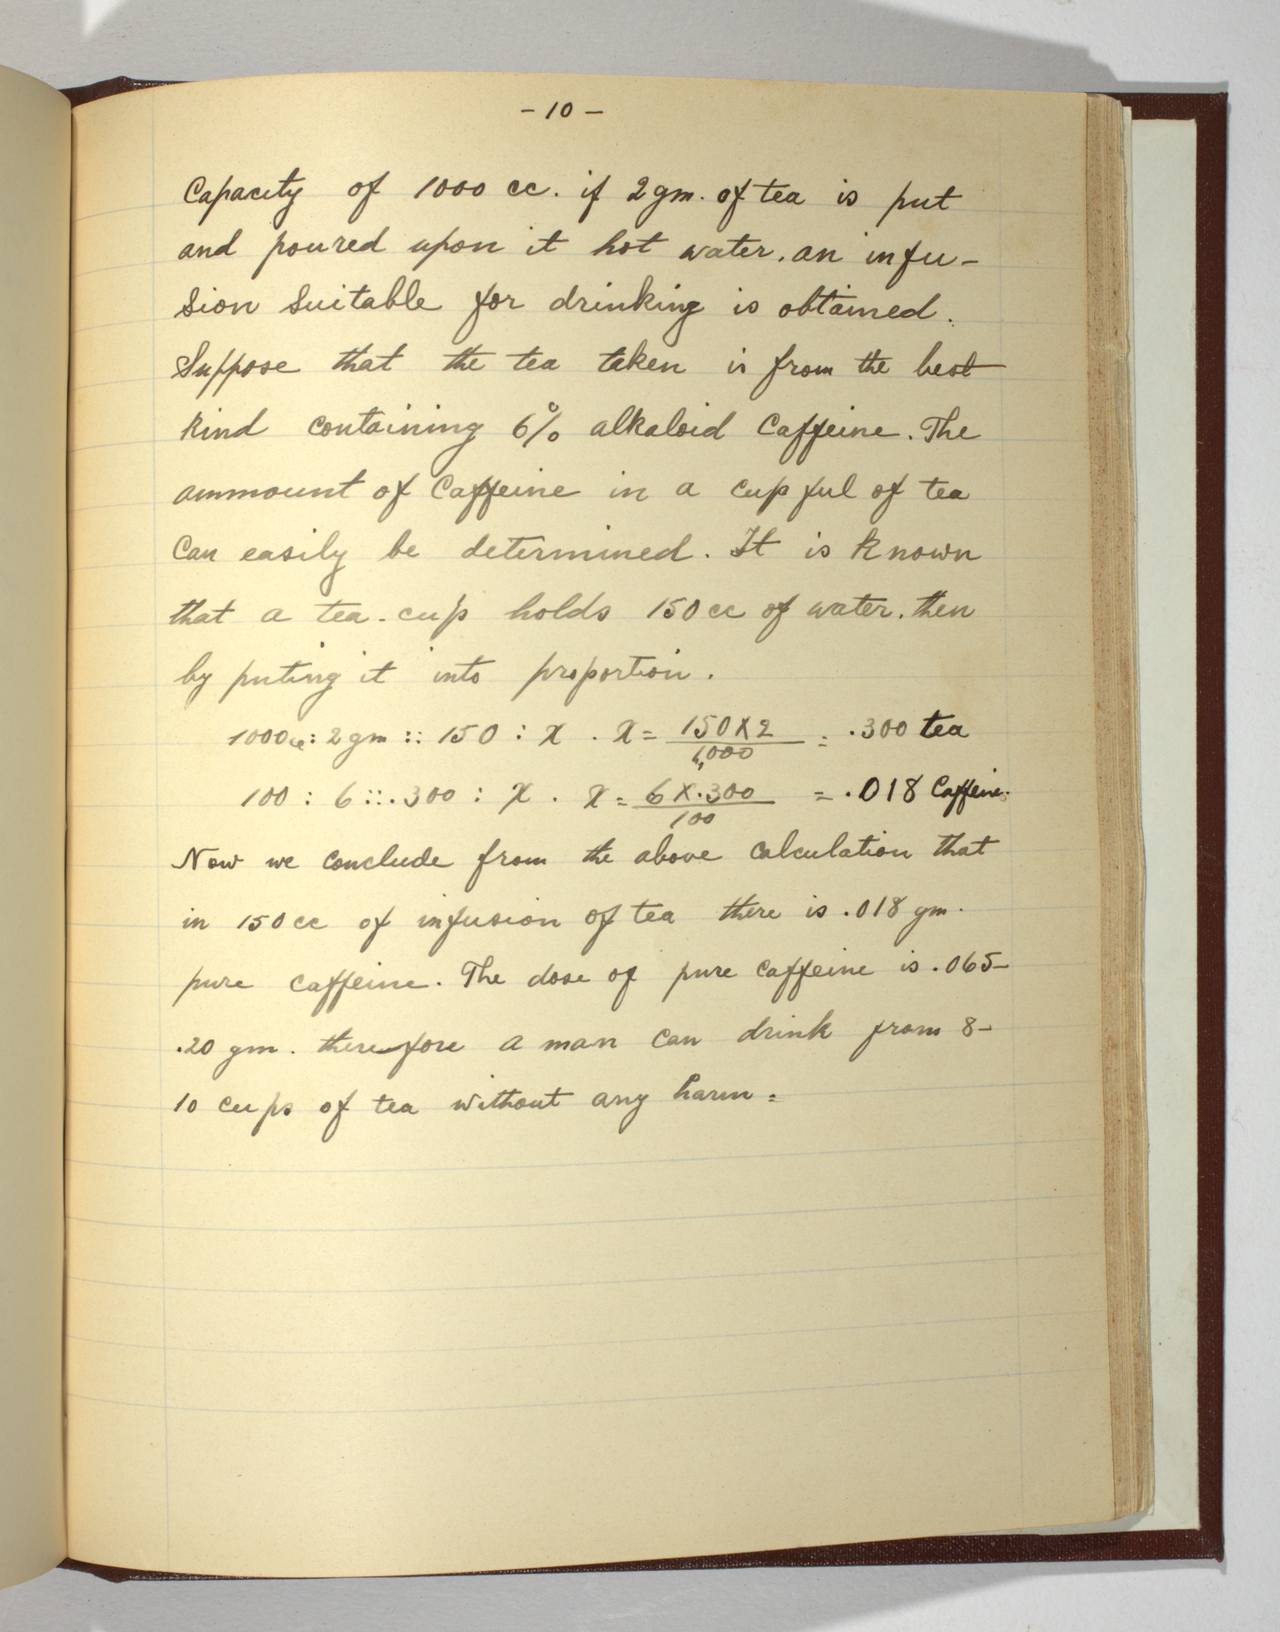 - 10 -
Capacity of 1000 cc. if 2 gm. of tea is put
and poured upon it hot water. an infu-
sion suitable for drinking is obtained.
Suppose that the tea taken is from the best
kind containing 6% alkaloid Caffeine. The
ammount of Caffeine in a cup ful of tea
Can easily be determined. It is known
that a tea-cup holds 150 cc of water. then
by puting it into proportion.
1000cc : 2 gm :: 150 : X . X = 150 X 2 / 1,000 = .300 tea
100 : 6 :: .300 : X . X = 6 X .300 / 100 = .018 Caffeine.
Now we conclude from the above calculation that
in 150 cc of infusion of tea there is .018 gm.
pure caffeine. The dose of pure caffeine is .065-
.20 gm. therefore a man can drink from 8-
10 cups of tea without any harm =